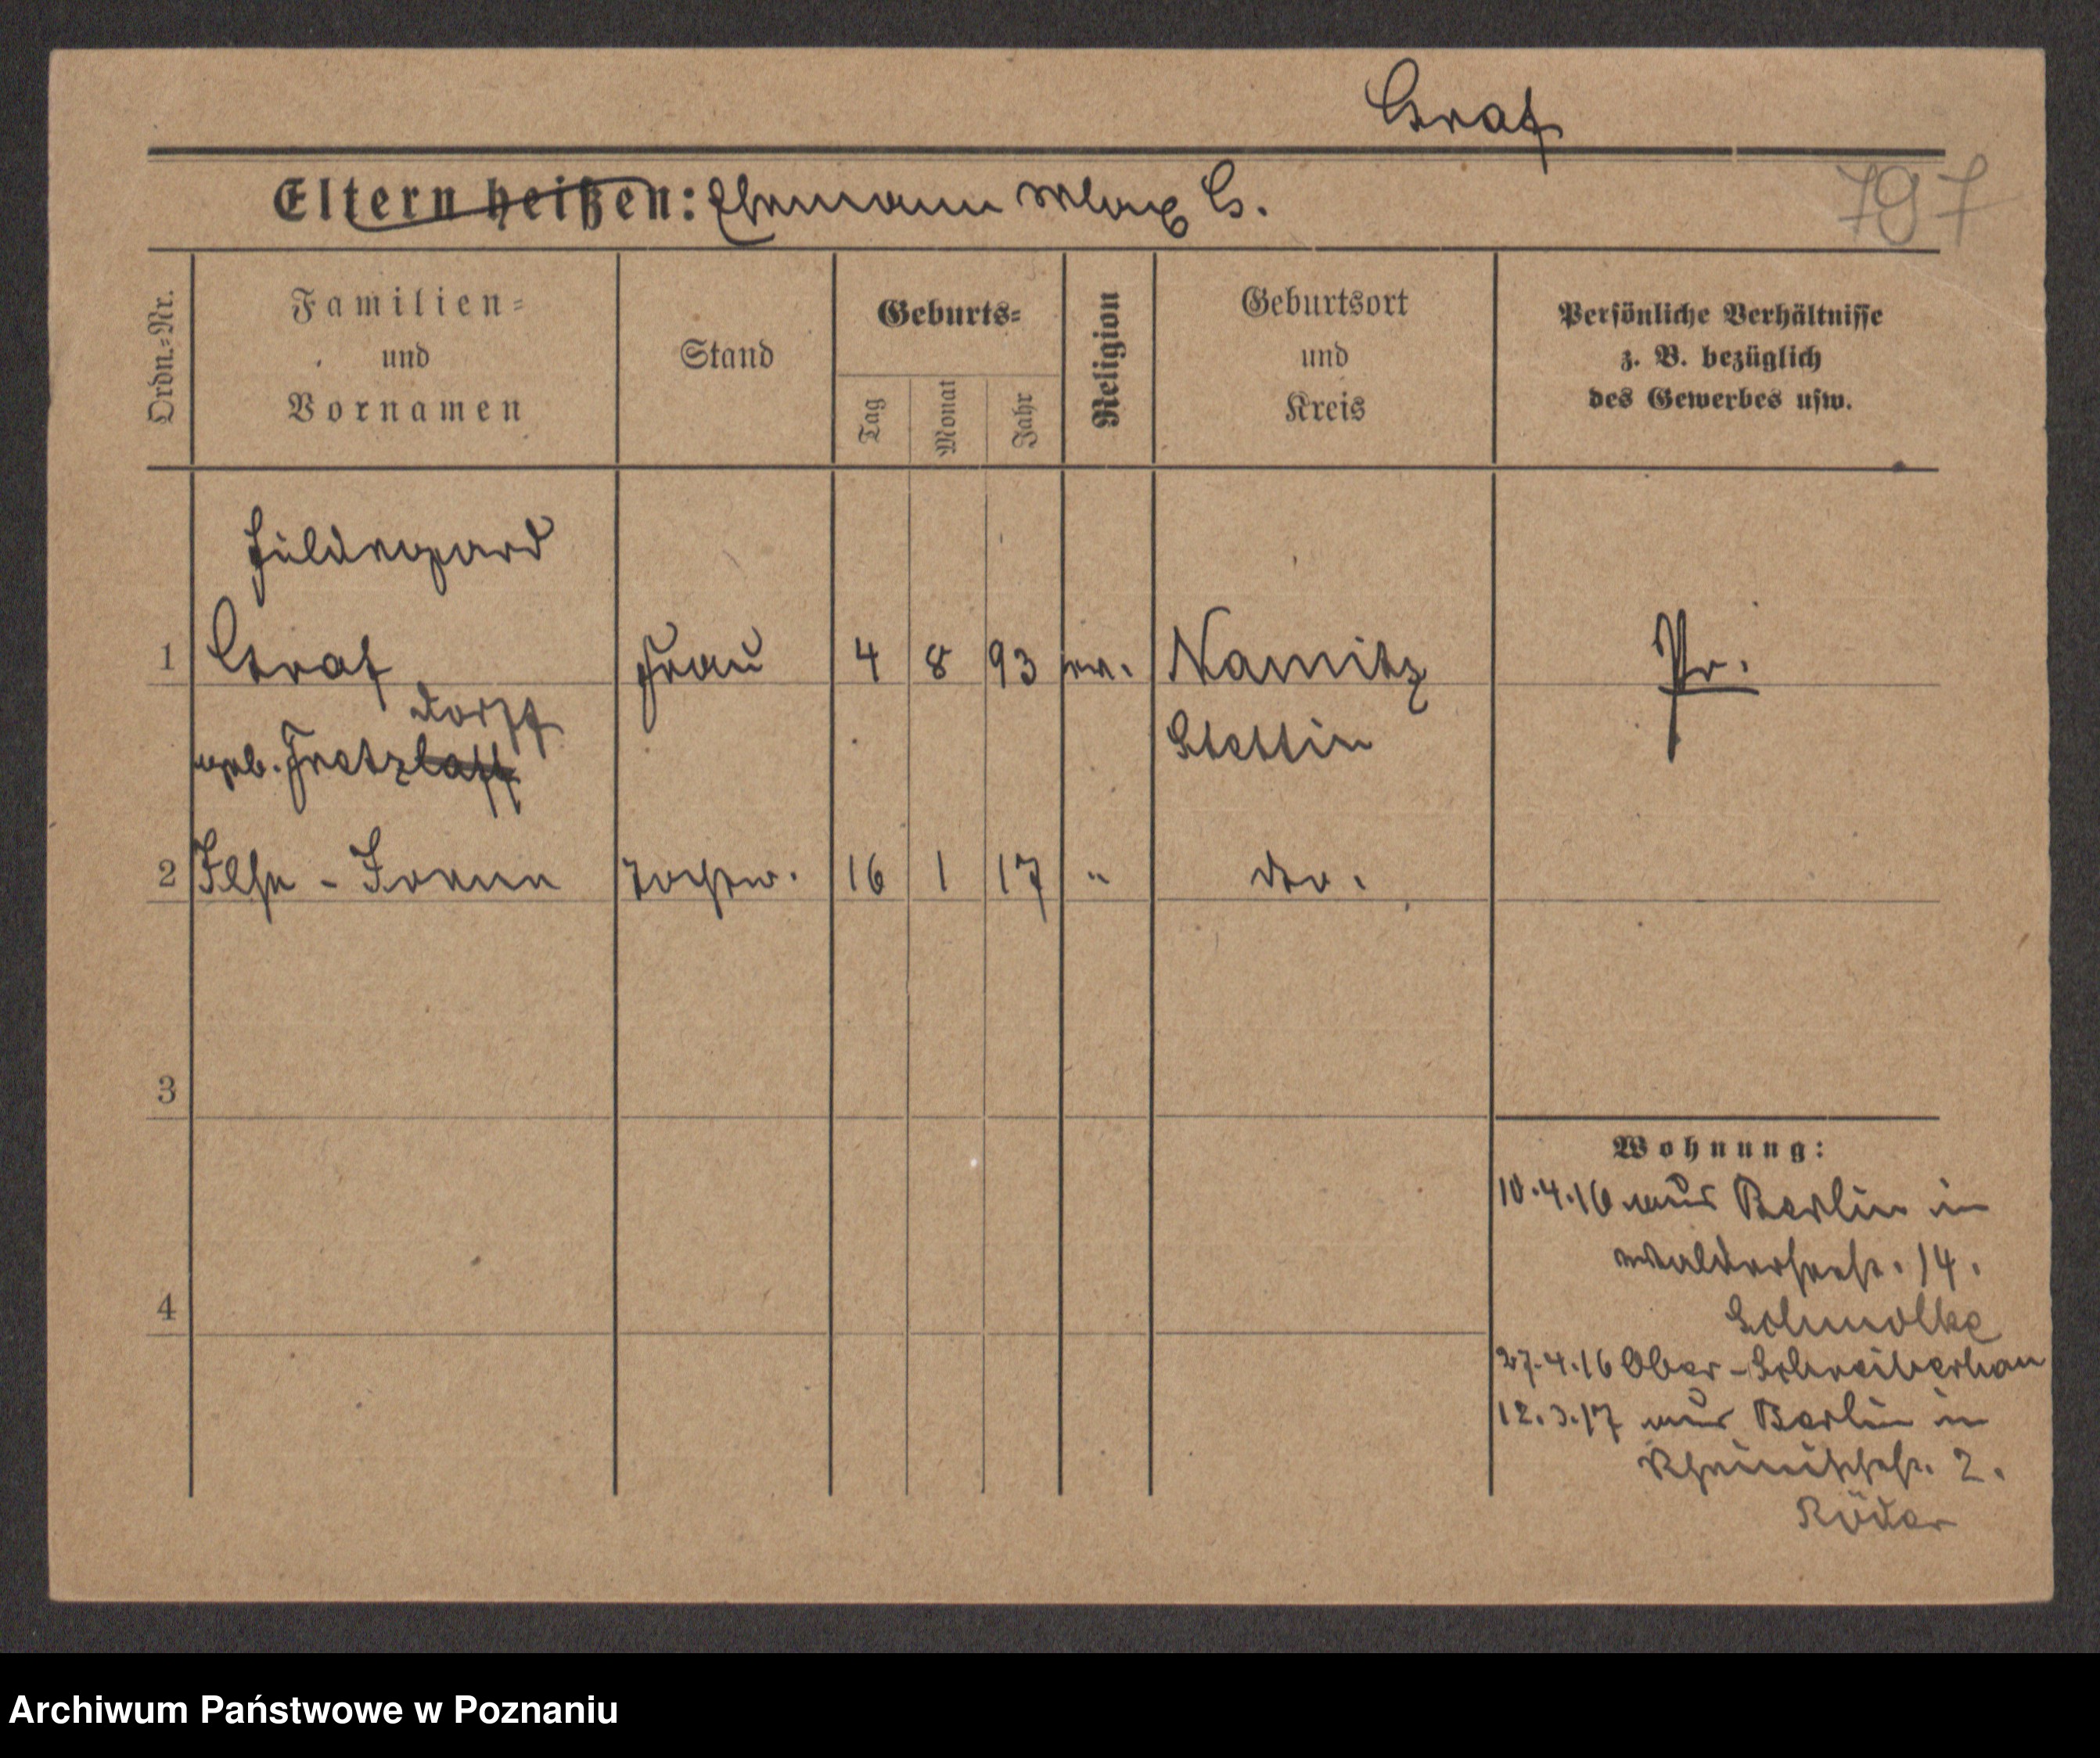 Graf
Eltern heißen: Ehemann Max G.
797
Ordn.-Nr.
Familien-
und
Vornamen
Stand
Geburts-
Tag
Monat
Jahr
Religion
Geburtsort
und
Kreis
Persönliche Verhältnisse
z. B. bezüglich
des Gewerbes usw.
Hildegard
1 Graf Frau 4 8 93 ev. Namitz Pr.
dorff
geb. Fretzlaff
Stettin
2 Ilse - Tochter. 16 1 17 " do.
3
4
Wohnung:
10.4.16 aus Berlin in
Walderseestr. 14.
Schmolke
27.4.16 Ober-Schreiberhau
12.3.17 aus Berlin in
Rheinischestr. 2.
Röder
Archiwum Państwowe w Poznaniu